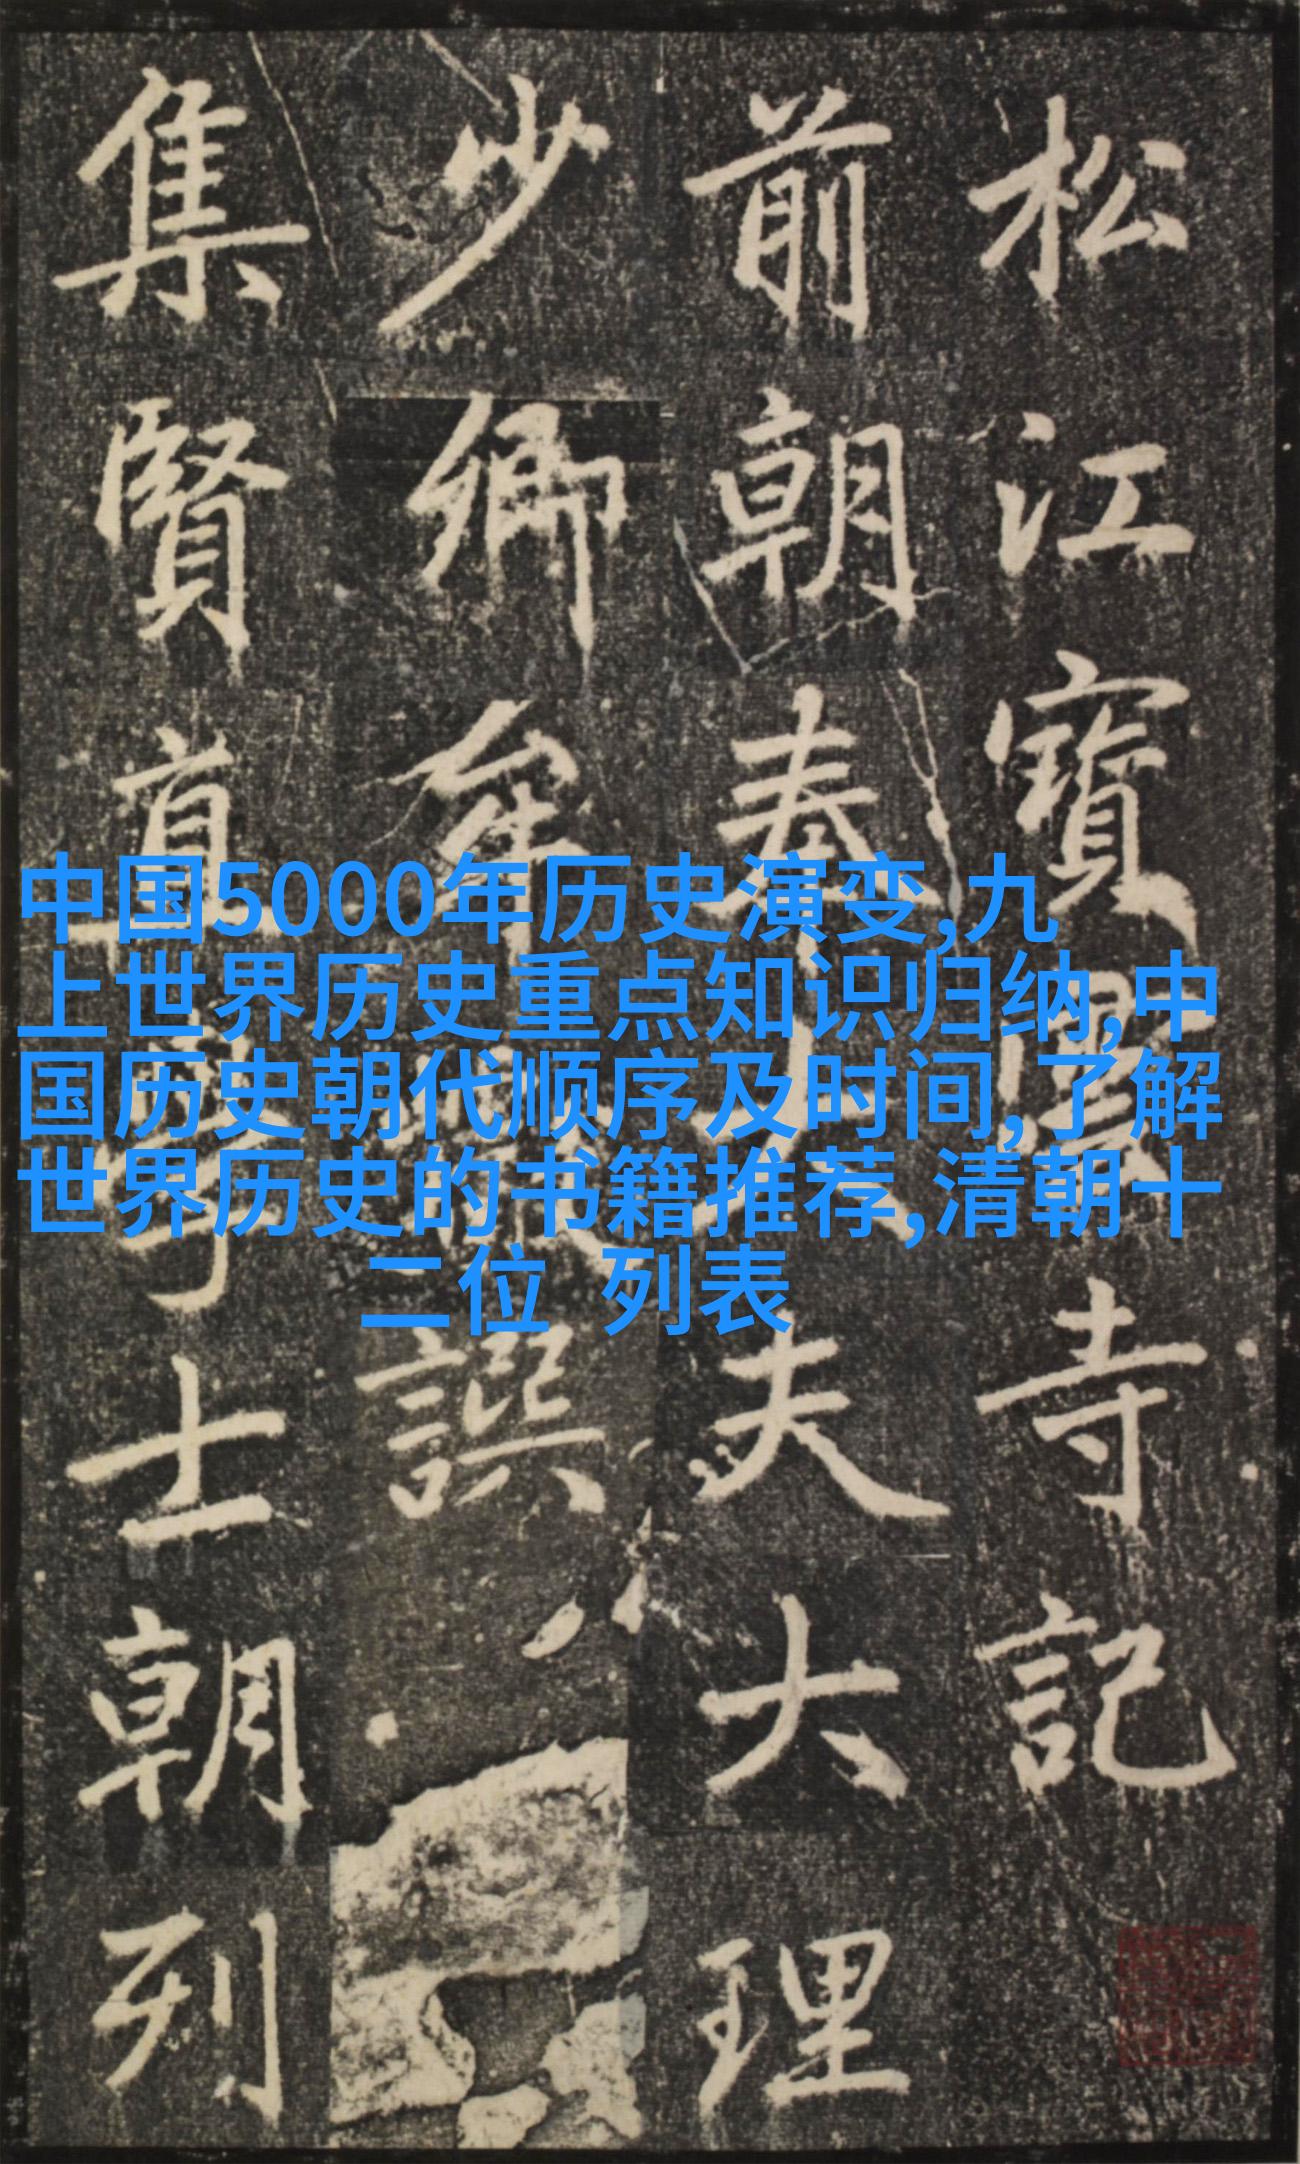 松江寶雲寺記
前朝奉大夫大理
少卿牟巘譔
集賢直學士朝列
中国5000年历史演变,九
上世界历史重点知识归纳,中
国历史朝代顺序及时间,了解
世界历史的书籍推荐,清朝十
二位 列表